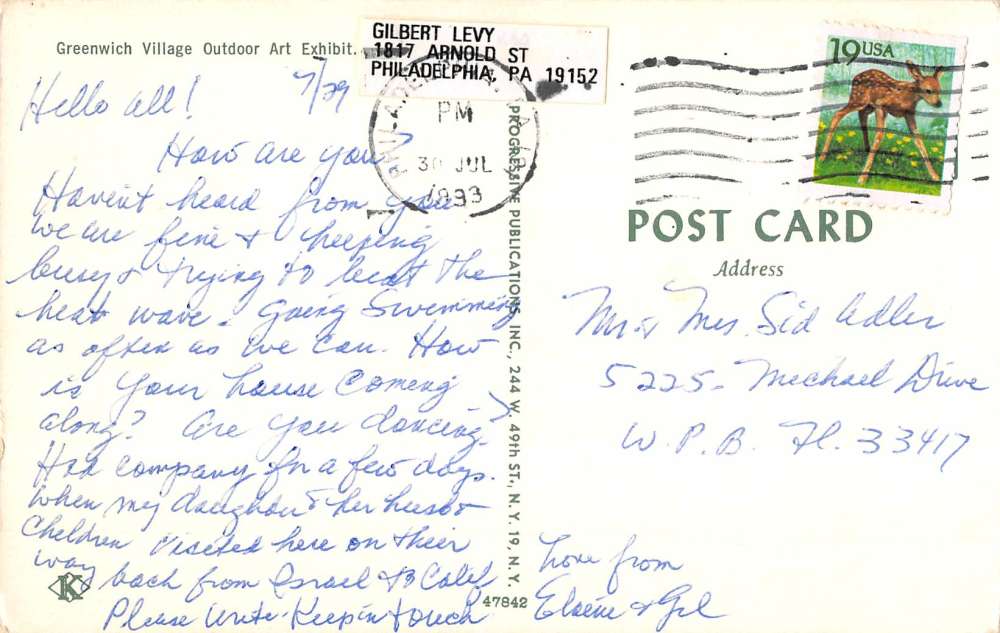 Greenwich Village Outdoor Art Exhibit.
GILBERT LEVY
1817 ARNOLD ST
PHILADELPHIA, PA 19152
19 USA
PM
30 JUL
1993
7/29
Hello all!
How are you?
Havent heard from you
We are fine & keeping
busy & trying to beat the
heat wave. Going Swimming
as often as we can. How
is your house coming
along? Are you dancing?
Had company for a few days.
When my daughter & her husb &
Children visited here on their
way back from Israel to Calif
Please write - Keep in touch
Love from
Elaine & Gil
K
PROGRESSIVE PUBLICATIONS, INC., 244 W. 49th ST., N. Y. 19, N. Y.
47842
POST CARD
Address
Mr & Mrs. Sid Adler
5225 - Michael Drive
W. P. B. Fl. 33417